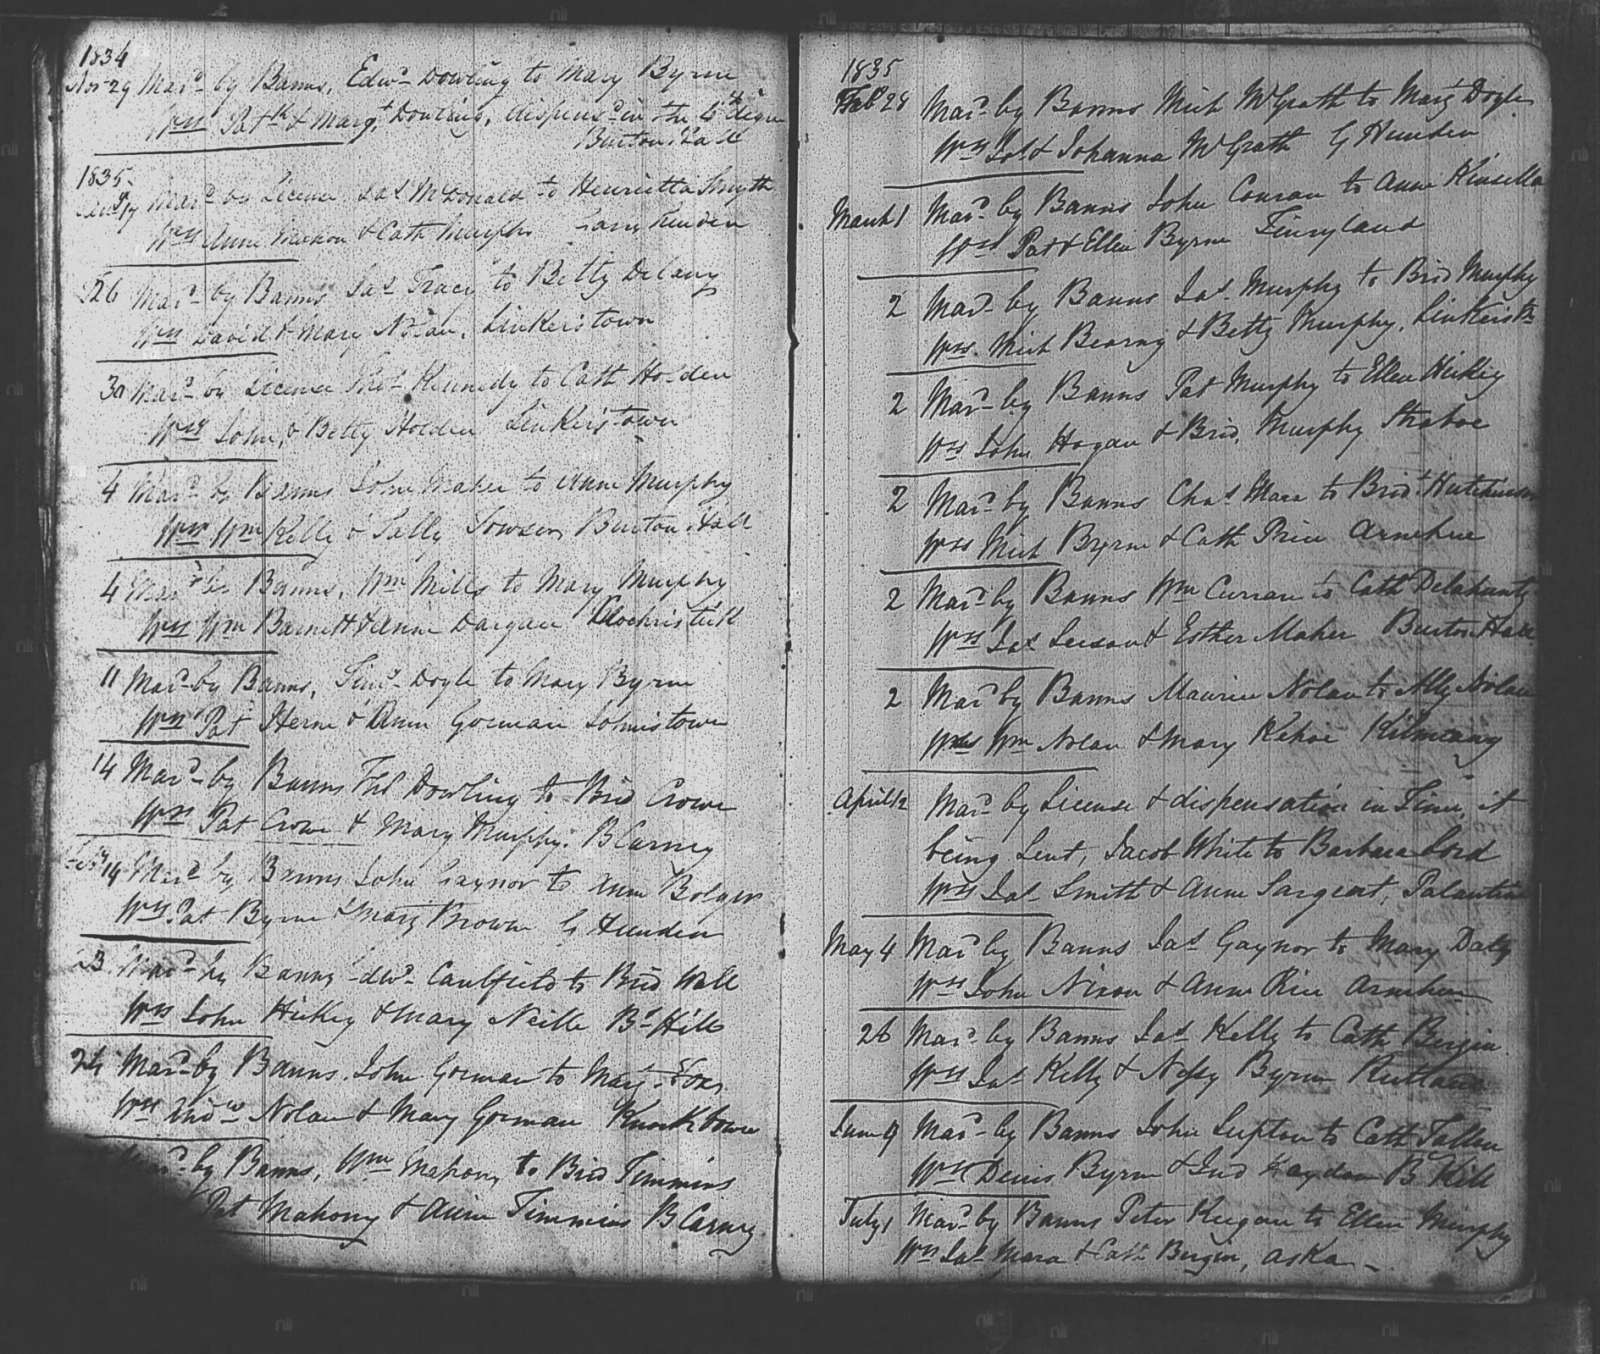 1834
Nov 29 Mard by Banns, Edwd Dowling to Mary Byrne
Wss Patk & Margt Dowling, dispensd in the 4th degree
Burton Hall
1835
Mard by License Jas McDonald to Henrietta Smyth
Wss Anne Mahon & Cath Murphy
26 Mard by Banns Jas Tracy to Betty Delany
Wss David & Mary Nolan, Linkerstown
30 Mard by License Thos Kennedy to Cath Holden
Wss John & Betty Holden Linkerstown
4 Mard by Banns John Maher to Anne Murphy
Wss Wm Kelly & Sally Burton Hall
4 Mard by Banns, Wm Mills to Mary Murphy
Wss Wm Barnett & Anne Dargan
11 Mard by Banns, Doyle to Mary Byrne
Wss Pat Herne & Ann Gorman Johnstown
14 Mard by Banns Ths Dowling to Brid Crowe
Wss Pat Crowe & Mary Murphy. B Carney
14 Mard by Banns John Gaynor to Anne Bolger
Wss Pat Byrne & Mary Brown G Hunden
23 Mard by Banns Edwd Caulfield to Brid Wall
Wss John Hickey & Mary Neille Bs Hill
24 Mard by Banns. John Gorman to Margt Fox
Wss Andw Nolan & Mary Gorman Knockbawn
Mard by Banns, Wm Mahony to Brid Timmins
Pat Mahony & Anne Timmins B Carney
1835
Feby 28 Mard by Banns Mich McGrath to Margt Doyle
Wss Jos & Johanna McGrath G Hunden
March 1 Mard by Banns John Conran to Anne Kinsella
Wss Pat & Ellen Byrne Tinryland
2 Mard by Banns Jas Murphy to Brid Murphy
Wss Mich Bearny & Betty Murphy, Linkerstn
2 Mard by Banns Pat Murphy to Ellen Hickey
Wss John Hogan & Brid Murphy Straboe
2 Mard by Banns Chas Mara to Bridt Hutchinson
Wss Mich Byrne & Cath Price Arnehue
2 Mard by Banns Wm Curran to Cath Delahunty
Wss Jas & Esther Maher Burton Hall
2 Mard by Banns Maurice Nolan to Ally Nolan
Wss Wm Nolan & Mary Kehoe Kilmeany
April 12 Mard by License & dispensation in Time, it
being Lent, Jacob White to Barbara Lord
Wss Jas Smith & Anne Sargent, Palantine
May 4 Mard by Banns Jas Gaynor to Mary Daly
Wss John Nixon & Anne Rice Arnehue
26 Mard by Banns Jas Kelly to Cath Bergin
Wss Jas Kelly & Nessy Byrne Rutland
June 9 Mard by Banns John Lupton to Cath Fallon
Wss Denis Byrne & Jno Haydon B Hill
July 1 Mard by Banns Peter Keegan to Ellen Murphy
Wss Jas Mara & Cath Bergin, Aska